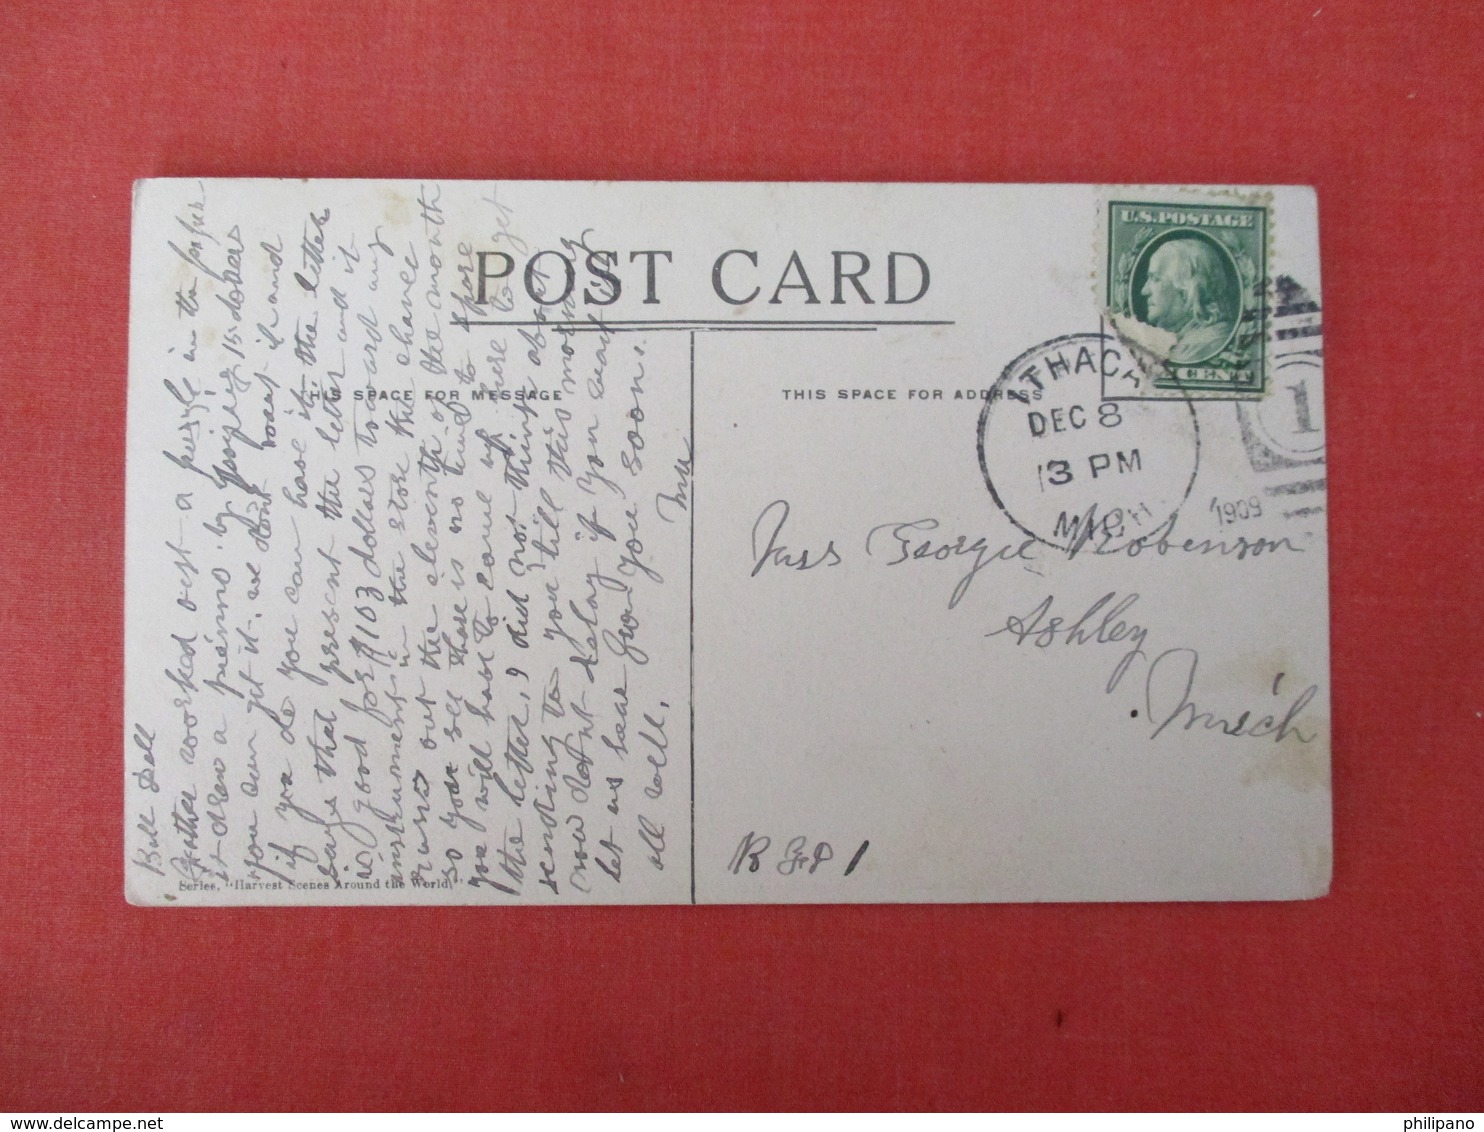 POST CARD
THIS SPACE FOR MESSAGE
THIS SPACE FOR ADDRESS
U.S. POSTAGE
1 CENT
ITHACA
DEC 8
3 PM
MICH
1909
1
Miss Georgie Robenson
Ashley
Mich
R F D 1
Dell
Father worked out a puzzle in the paper
it drew a pienno. by paying 15 dollars
you can get it. we dont want it and
if you do you can have it. the letter
says that present the letter and it
is good for $103 dollars toward any
instrument in the store they have
runs out the eleventh of the month
so you see there is no time to spare
you will have to come up here to get
the letter, I did not think about
sending to you till this morning
now dont delay if you want it
let us hear from you soon.
all well.
Series, "Harvest Scenes Around the World,"
philipano